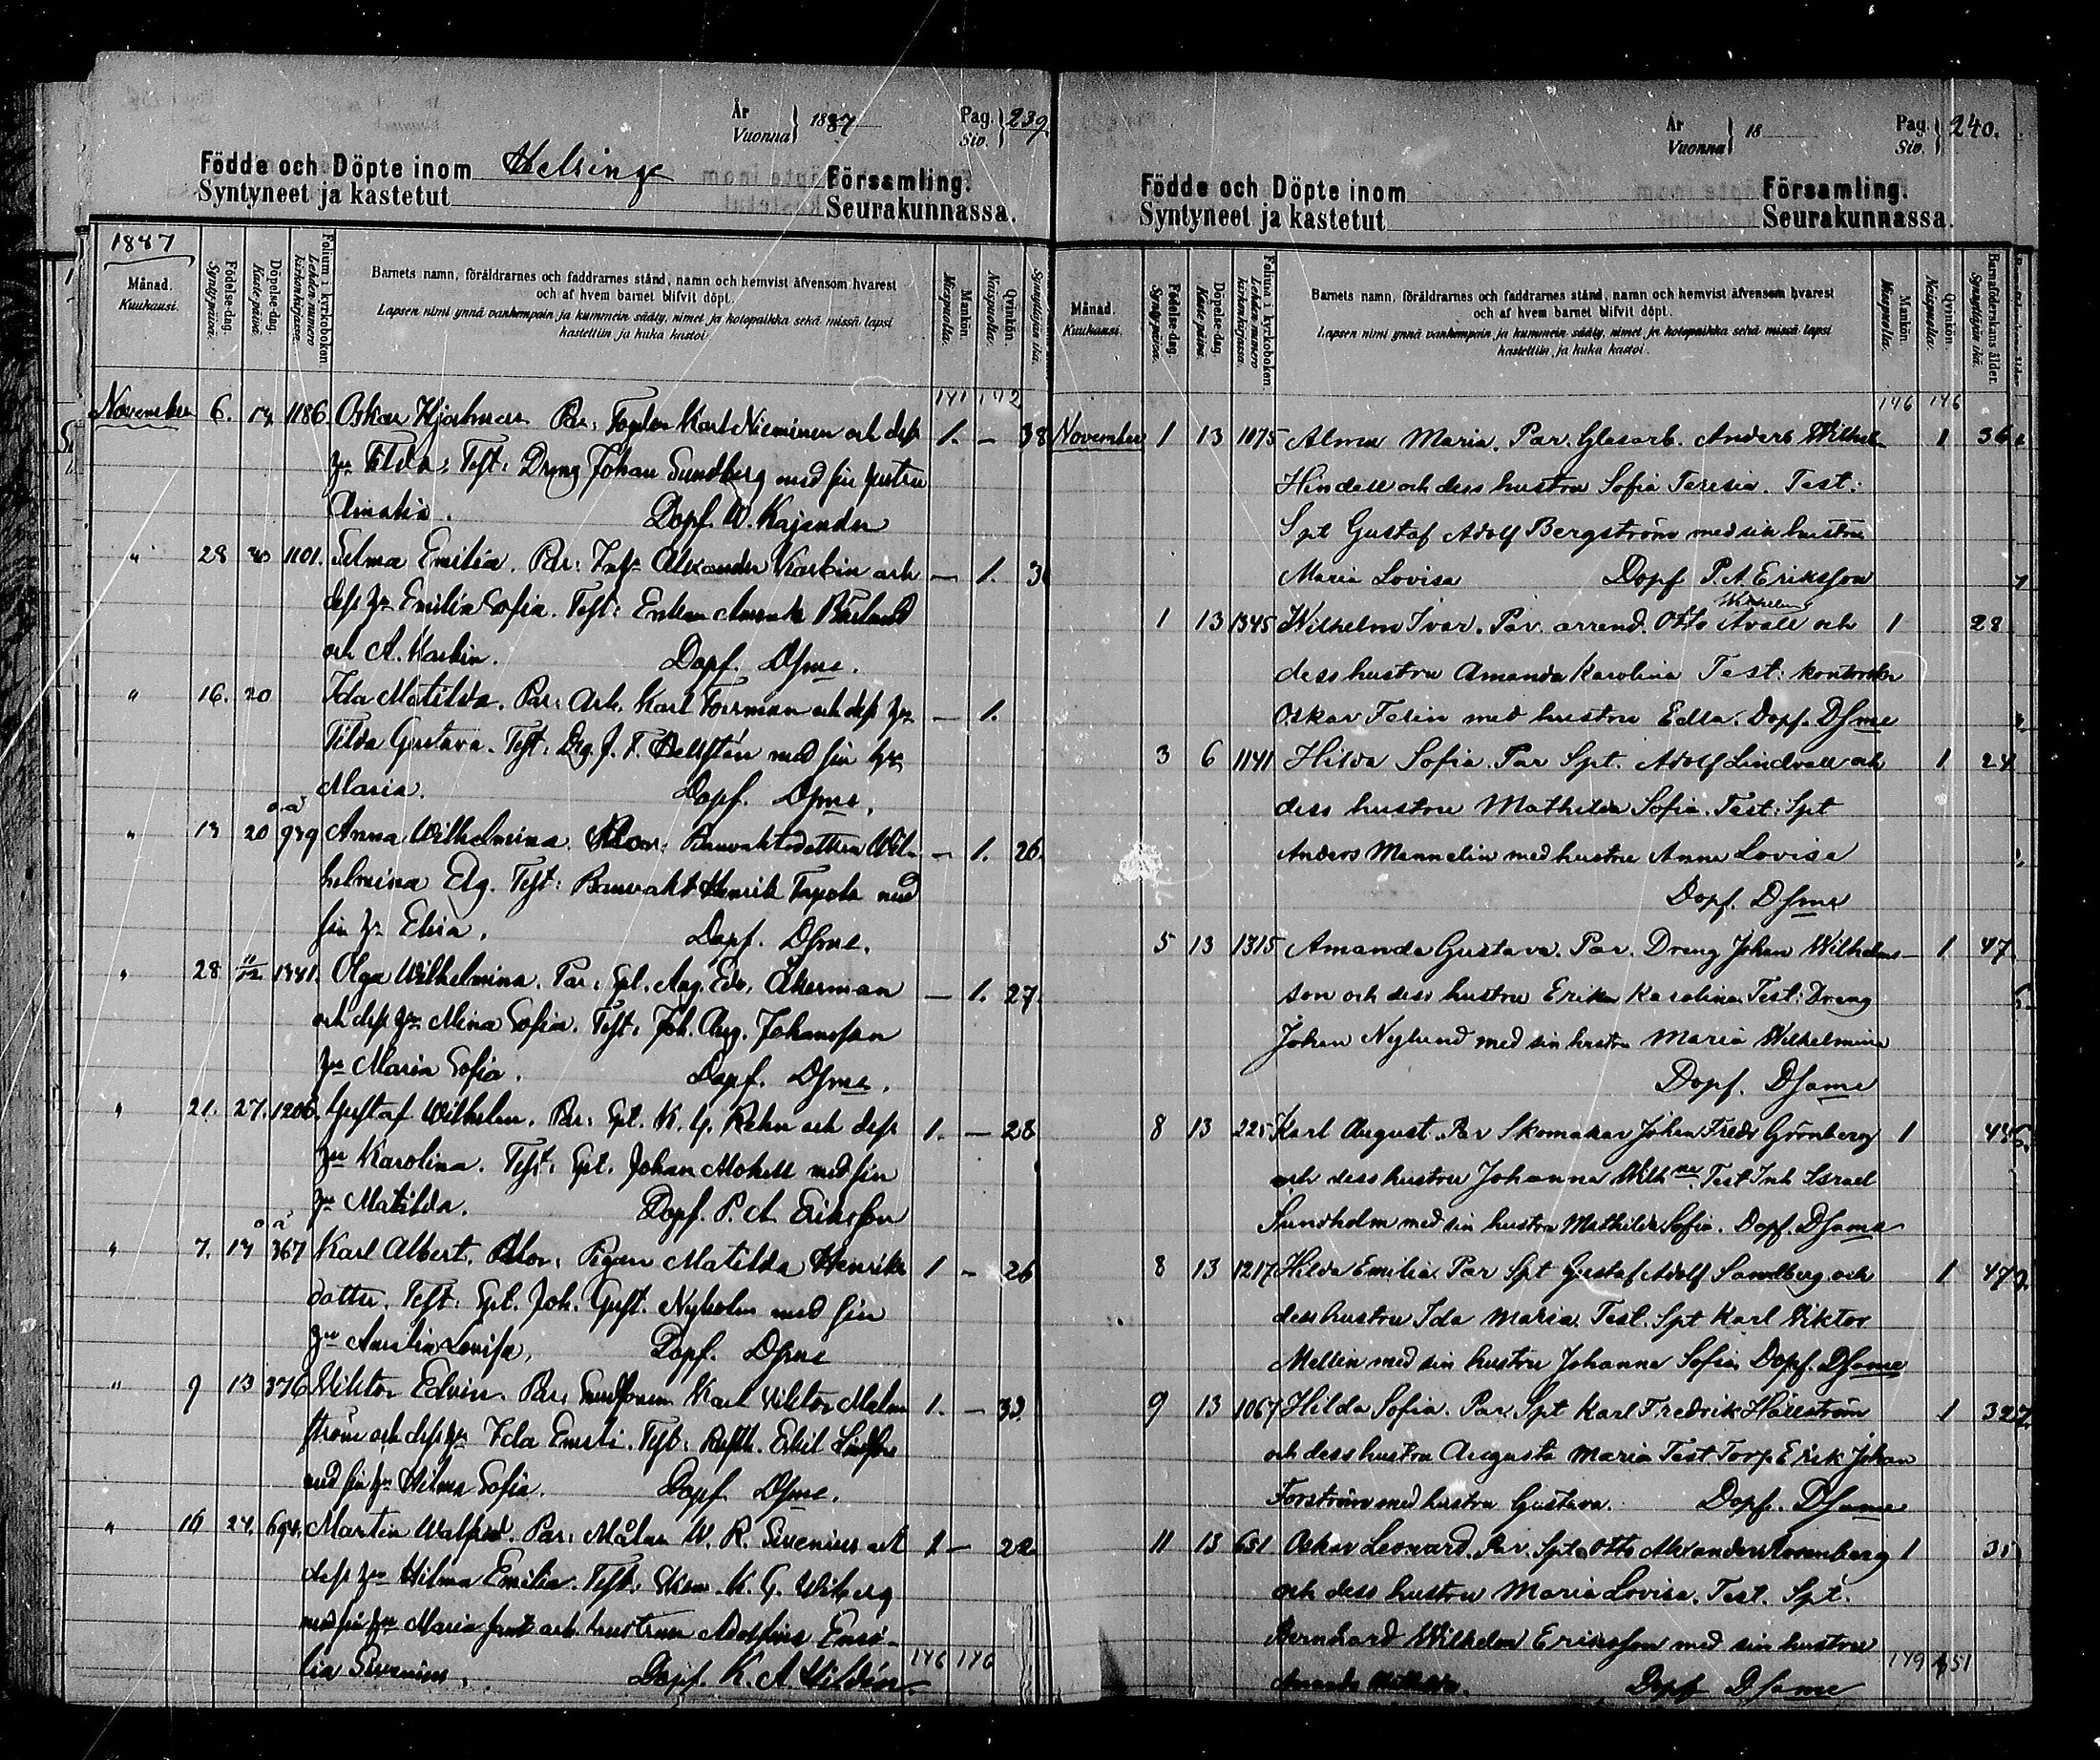 År
Vuonna
1887
Pag.
Siv.
239.
Födde och Döpte inom Helsinge Församling.
Syntyneet ja kastetut Seurakunnassa.
1887
Månad.
Kuukausi.
Födelse-dag.
Syntypäivä.
Döpelse-dag.
Kaste-päivä.
Folium i kyrkoboken.
Lehden numero kirkonkirjassa.
Barnets namn, föräldrarnes och faddrarnes stånd, namn och hemvist äfvensom hvarest
och af hvem barnet blifvit döpt.
Lapsen nimi ynnä vanhempain ja kummein sääty, nimet ja kotopaikka sekä missä lapsi
kastettiin ja kuka kastoi.
Mankön.
Miespuolia.
Qvinkön.
Naispuolia.
141 142
November 6. 13. 1186. Oskar Hjalmar. Par: Karl Nieminen och dess 1. - 38
hu Tilda. Test: Dreng Johan Sundberg med sin hustru
Amalia. Döpf. W. Kajander
" 28 30 1101. Selma Emilia. Par: Alexander Karbin och — 1. 3
dess hu Emilia Sofia. Test: Enkan Amanda Barlund
och A. Karbin. Döpf. Dsme.
" 16. 20 Ida Matilda. Par: Arb. Karl Forsman och dess hu — 1.
Tilda Gustava. Test: Drg. J. F. Dellstén med sin hu
Maria. Döpf. Dsme.
o ä
" 13 20 939 Anna Wilhelmina. Mor: Banvaktsdottren Wil- — 1. 26.
helmina Elg. Test: Banvakt Henrik Tapola med
sin hu Elisa. Döpf. Dsme.
" 28 11/12 1341. Olga Wilhelmina. Par: Spt. Aug. Edv. Åkerman — 1. 27.
och dess hu Mina Sofia. Test: Joh. Aug. Johansson
hu Maria Sofia. Döpf. Dsme.
" 21. 27. 1206. Gustaf Wilhelm. Par: Spt. K. G. Rehn och dess 1. — 28
hu Karolina. Test: Spt. Johan Mokell med sin
hu Matilda. Döpf. P. A. Eriksson
o ä
" 7. 13 367 Karl Albert. Mor: Pigan Matilda Henriks 1 - 26
dotter. Test: Spt. Joh. Gust. Nyholm med sin
hu Amalia Lovisa. Döpf. Dsme
" 9 13 376 Viktor Edvin. Par: Karl Viktor Malm 1. - 33.
ström och dess hu Ida Emeli. Test:
med sin hu Hilma Sofia. Döpf. Dsme.
" 16 27. 694. Martin Walfrid. Par: Målar W. R. Sirenius och 1 — 22
dess hu Hilma Emilia. Test: Skom. K. G. Wiberg
med sin hu Maria samt arb. hustrun Adolfina Emi-
lia Sirenius. Döpf. K. A. Hildén.
146 146
År
Vuonna
18
Pag.
Siv.
240.
Födde och Döpte inom Församling.
Syntyneet ja kastetut Seurakunnassa.
Månad.
Kuukausi.
Födelse-dag.
Syntypäivä.
Döpelse-dag.
Kaste-päivä.
Folium i kyrkoboken.
Lehden numero kirkonkirjassa.
Barnets namn, föräldrarnes och faddrarnes stånd, namn och hemvist äfvensom hvarest
och af hvem barnet blifvit döpt.
Lapsen nimi ynnä vanhempain ja kummein sääty, nimet ja kotopaikka sekä missä lapsi
kastettiin ja kuka kastoi.
Mankön.
Miespuolia.
Qvinkön.
Naispuolia.
Barnaföderskans ålder.
Synnyttäjän ikä.
146 146
November 1 13 1075 Alma Maria. Par. Glasarb. Anders Wilhelm 1 36
Hindell och dess hustru Sofia Teresia. Test:
Spt Gustaf Adolf Bergström med sin hustru
Maria Lovisa Döpf P. A. Eriksson
Wilhelm
1 13 1345 Wilhelm Ivar. Par. arrend. Otto Avall och 1 28
dess hustru Amanda Karolina Test: kontorskn
Oskar Felin med hustru Edla. Döpf. Dsme
3 6 1141 Hilda Sofia. Par Spt. Adolf Lindvall och 1 24
dess hustru Mathilda Sofia. Test: Spt
Anders Mannelin med hustru Anna Lovisa
Döpf. Dsme
5 13 1315 Amanda Gustava. Par. Dreng Johan Wilhelms- 1 47
son och dess hustru Erika Karolina Test: Dreng
Johan Nylund med sin hustru Maria Wilhelmina
Döpf. Dsame
8 13 225 Karl August. Par Skomakar Johan Fredr Grönberg 1 44
och dess hustru Johanna Wilhna. Test Inh Israel
Sundholm med sin hustru Mathilda Sofia. Döpf. Dsame
8 13 1217 Hilda Emilia Par Spt Gustaf Adolf Sandberg och 1 47
dess hustru Ida Maria. Test. Spt Karl Viktor
Mellin med sin hustru Johanna Sofia Döpf. Dsame
9 13 1067 Hilda Sofia. Par Spt Karl Fredrik Hällström 1 32
och dess hustru Augusta Maria Test Torp. Erik Johan
Forström med hustru Gustava. Döpf. Dsame
11 13 651 Oskar Leonard. Par. Spt Otto Alexander Rosenberg 1 31
och dess hustru Maria Lovisa. Test. Spt.
Bernhard Wilhelm Eriksson med sin hustru
Amanda Mathilda. Döpf Dsame
149 151